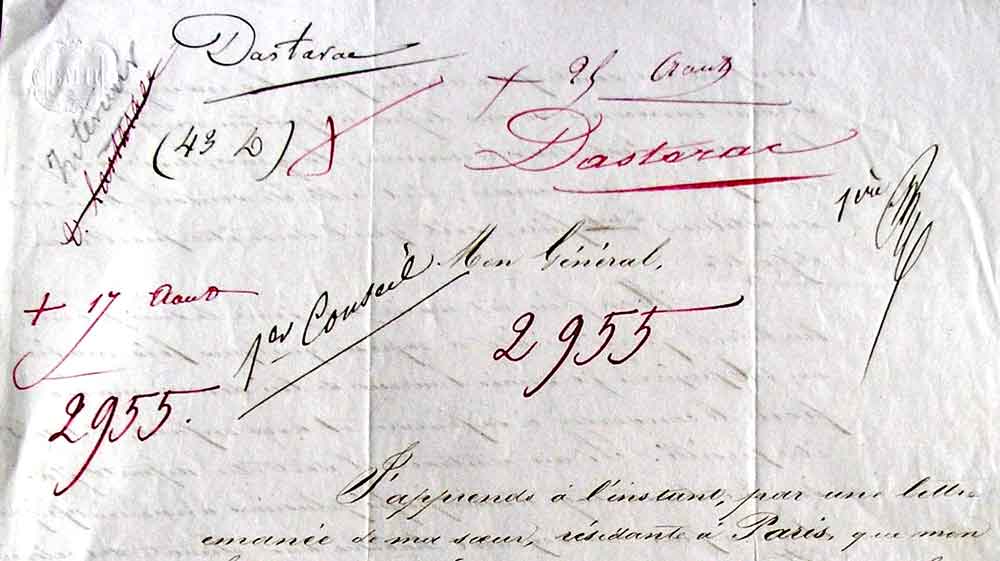 Dastarac
+ 25 Août
(43 D)
Dastarac
1ère
Mon Général,
1er Conseil
+ 17 Août
2955
2955.
J'apprends à l'instant, par une lettre
émanée de ma sœur, résidante à Paris, que mon